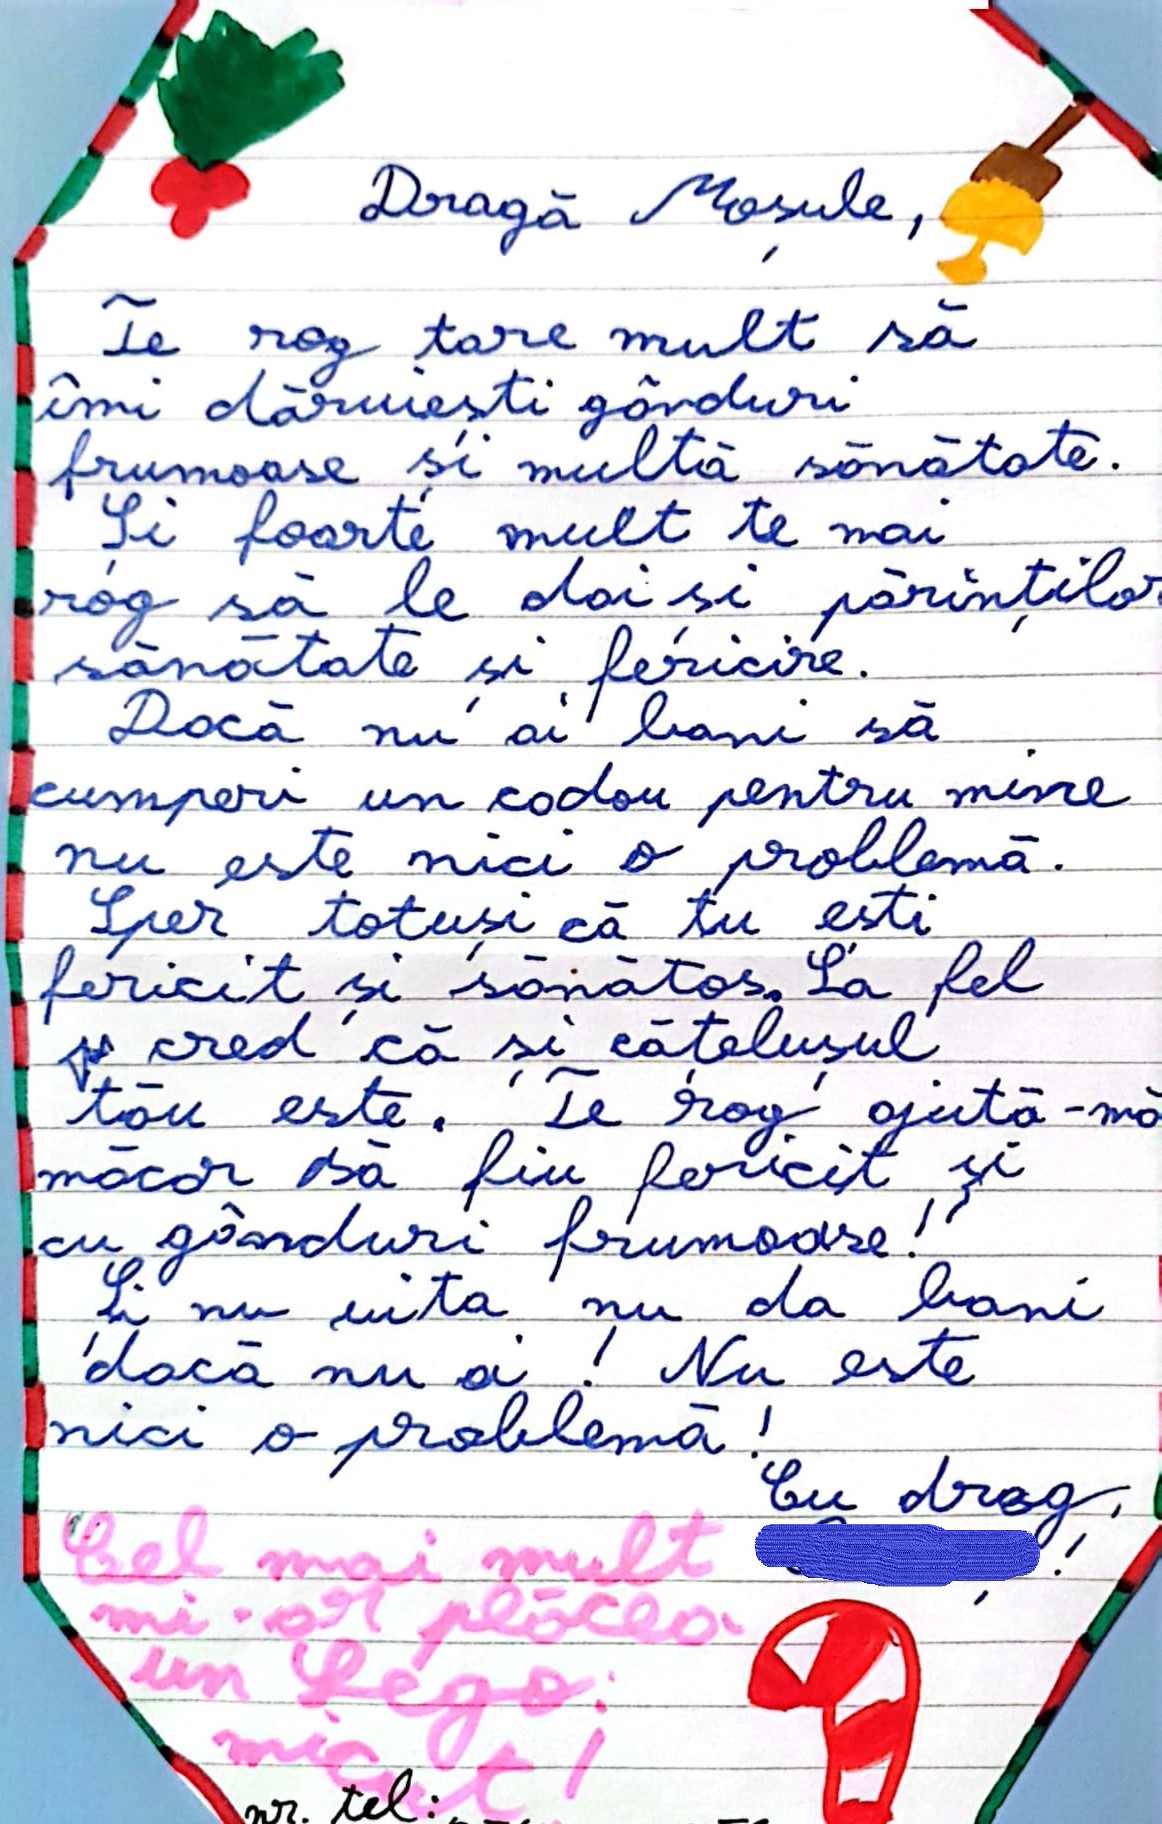 Dragă Moșule,
Te rog tare mult să
îmi dăruiești gânduri
frumoase și multă sănătate.
Și foarte mult te mai
rog să le dai și părinților
sănătate și fericire.
Dacă nu ai bani să
cumperi un cadou pentru mine
nu este nici o problemă.
Sper totuși că tu ești
fericit și sănătos. La fel
cred că și cățelușul
tău este. Te rog ajută-mă
măcar să fiu fericit și
cu gânduri frumoase!
Și nu uita nu da bani
dacă nu ai! Nu este
nici o problemă!
Cu drag,
!
Cel mai mult
mi-ar plăcea
un Lego:
micuț!
nr. tel: